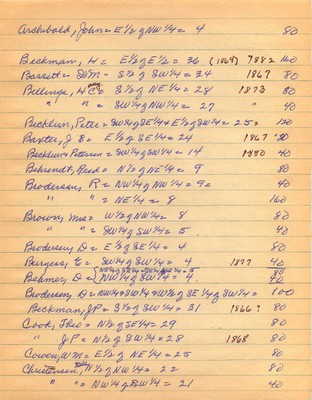 Archibald, John = E½ of NW¼ = 4 80
Beekman, H = E½ of E½ = 36 (1869) 7882 160
Bassett = D.M = S½ of SW¼ = 34 1867 80
Bellinge, H = S½ of NE¼ = 28 1873 80
" " = SW¼ of NW¼ = 27 " 40
Becklun, Peter = SW¼ of SW¼ + E½ of SW¼ = 25 = 120
Baxter, J E = E½ of SE¼ = 24 1867 80
Becklun Peterson = SW¼ of SW¼ = 14 1880 40
Behrendt, Fred = N½ of NE¼ = 9 80
Brodersen, R = NW¼ of NW¼ = 9 = 40
" " = NE¼ = 8 160
Brown, Mrs = W½ of NW¼ = 8 80
" " = SW¼ of SW¼ = 5 40
Brodersen, D = E½ of SE¼ = 4 80
Burgess, E = SW¼ of SW¼ = 4 1877 40
NE¼ of SE¼ = SE¼ of NE¼ = 5 80
Behmer, D = NW¼ of SW¼ = 4 40
Brodersen, D = NW¼ of SW¼ + W½ of SE¼ of SW¼ = 100
Beekman, J P = S½ of SW¼ = 31 1866? 80
Cook, Theo = N½ of SE¼ = 29 80
" J P = N½ of SW¼ = 28 1868 80
Cowen, W M = E½ of NE¼ = 25 80
Christensen, N½ of NW¼ = 22 80
" " = NW¼ of SW¼ = 21 40